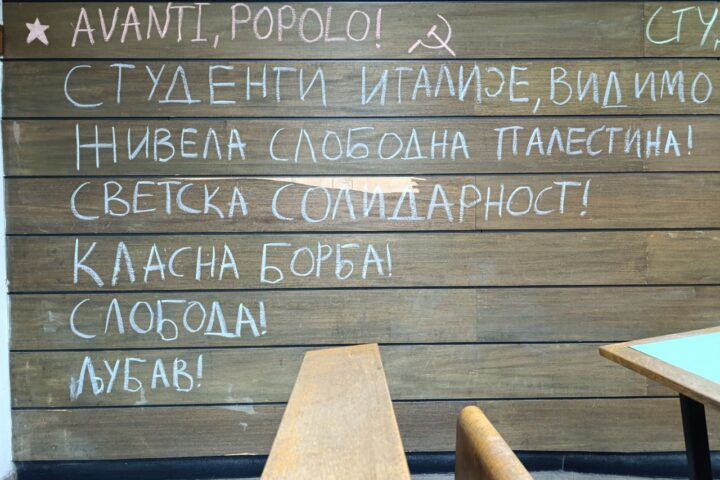 AVANTI, POPOLO!
СТУ
СТУДЕНТИ ИТАЛИЈЕ, ВИДИМО
ЖИВЕЛА СЛОБОДНА ПАЛЕСТИНА!
СВЕТСКА СОЛИДАРНОСТ!
КЛАСНА БОРБА!
СЛОБОДА!
ЉУБАВ!